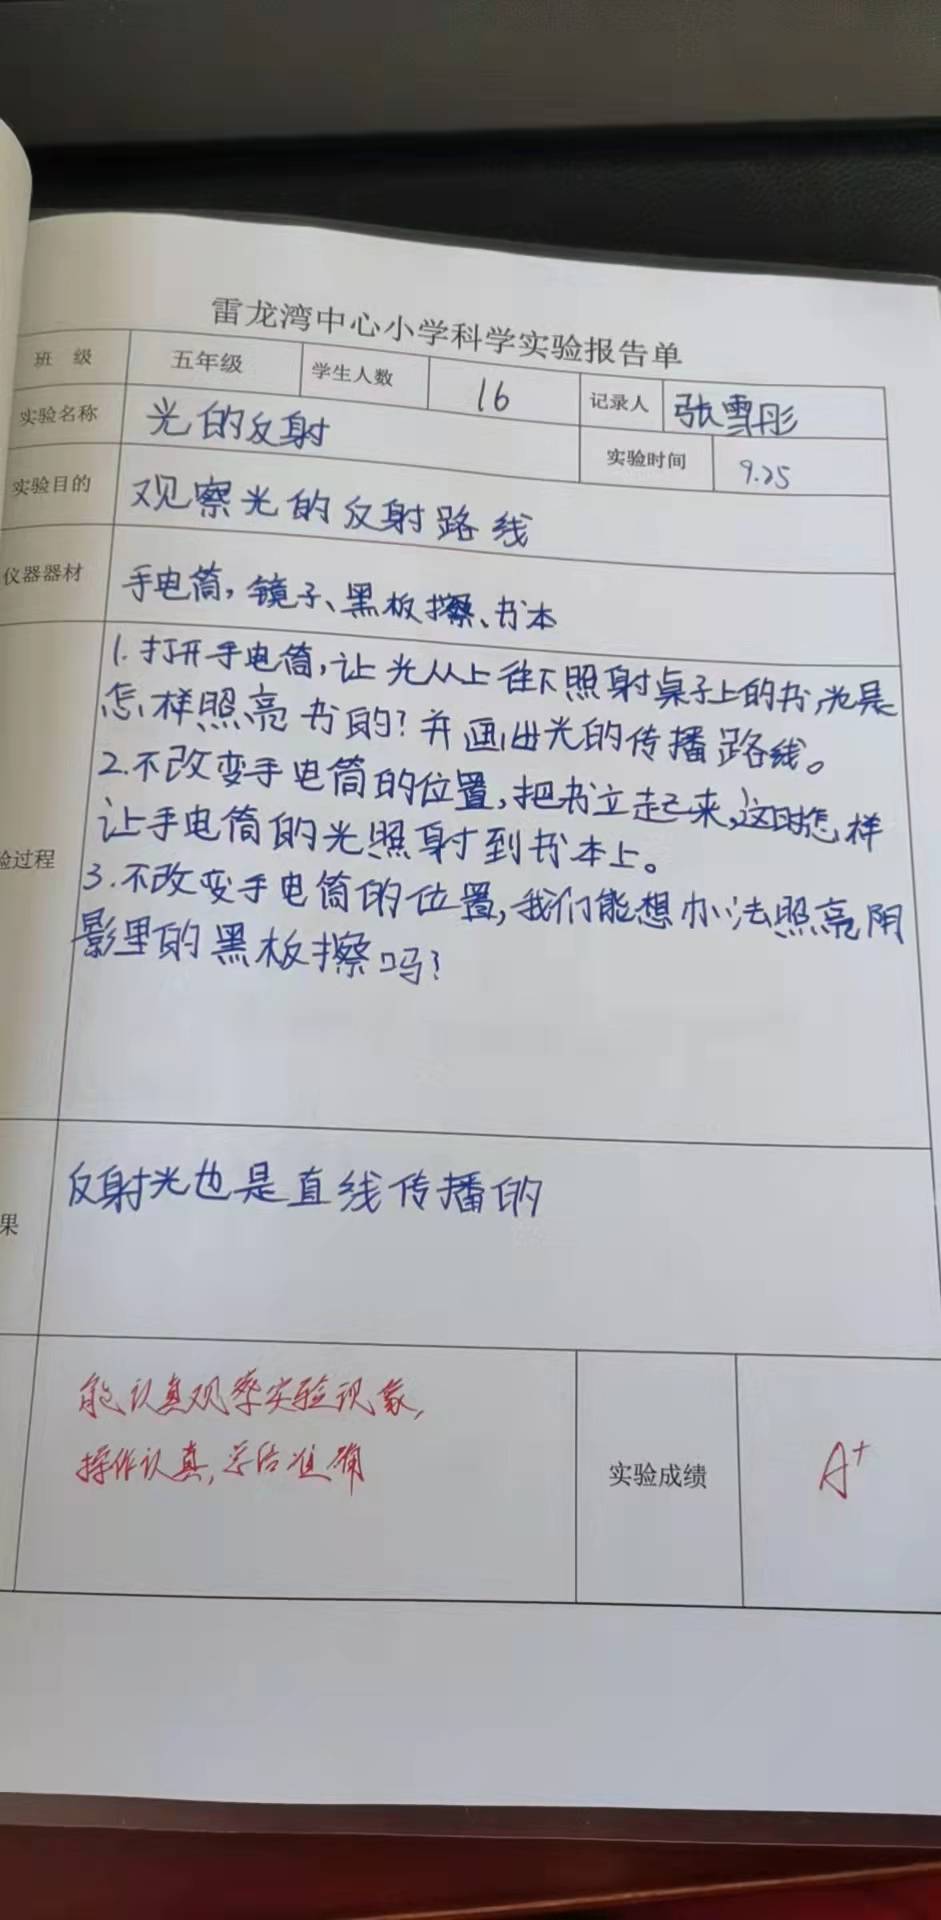 雷龙湾中心小学科学实验报告单
班 级 五年级 学生人数 16 记录人 张雪彤
实验名称 光的反射 实验时间 9.25
实验目的 观察光的反射路线
仪器器材 手电筒,镜子、黑板擦、书本
1.打开手电筒,让光从上往下照射桌子上的书,光是
怎样照亮书的?并画出光的传播路线。
2.不改变手电筒的位置,把书立起来,这时怎样
让手电筒的光照射到书本上。
验过程
3.不改变手电筒的位置,我们能想办法照亮阴
影里的黑板擦吗?
果 反射光也是直线传播的
能认真观察实验现象,
操作认真,总结准确
实验成绩 A+